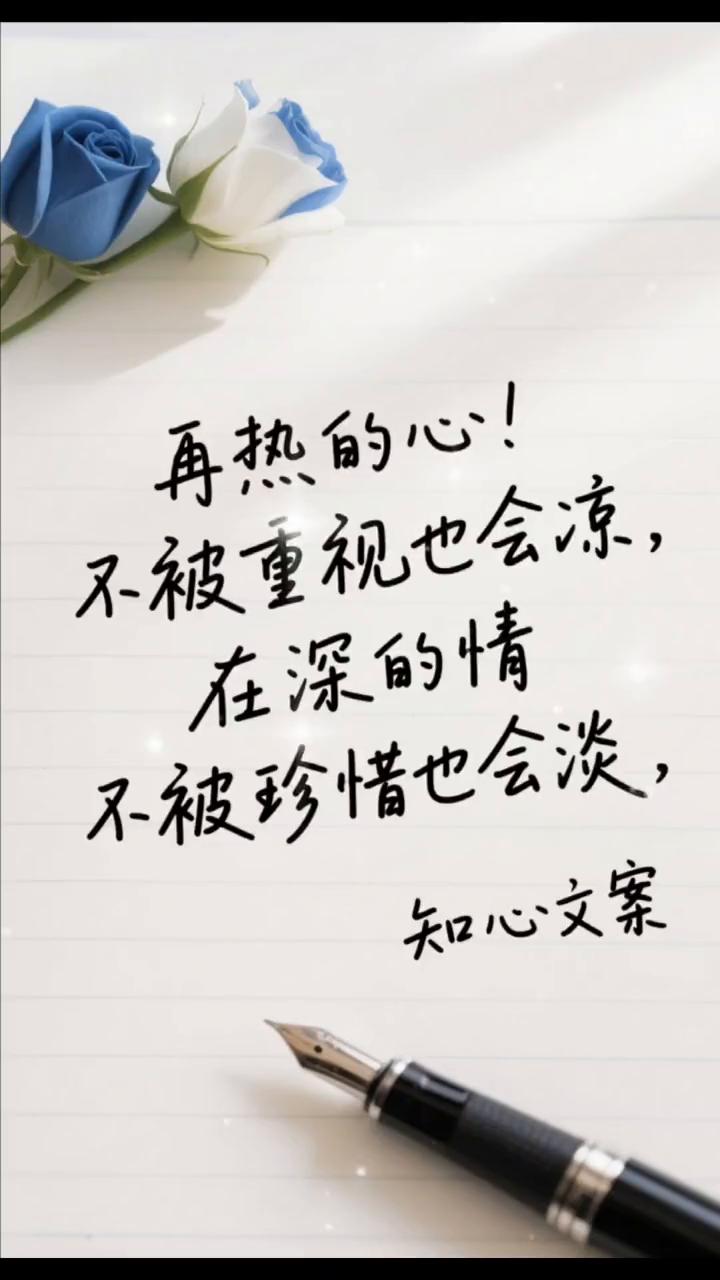 再热的心！
不被重视也会凉，
在深的情
不被珍惜也会淡，
知心文案